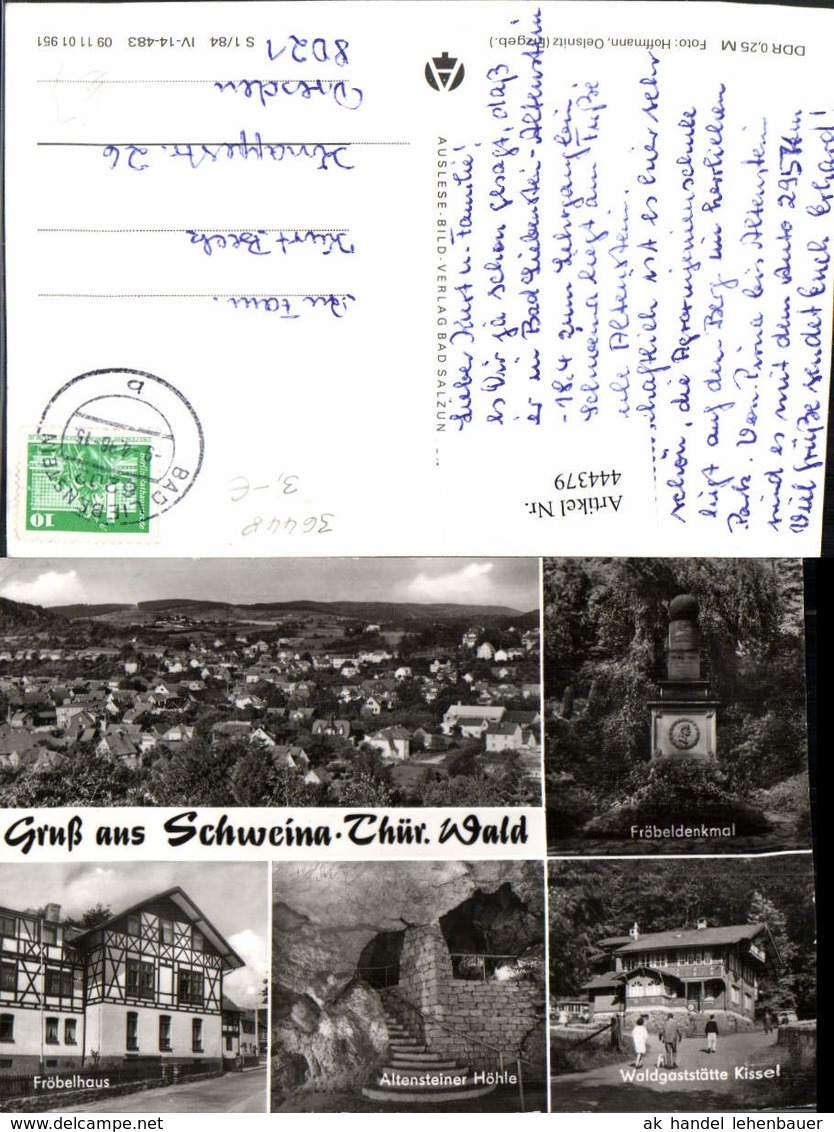 DDR 0,25 M Foto: Hoffmann, Oelsnitz (Erzgeb.)
S 1/84 IV-14-483 09 11 01 951
AUSLESE-BILD-VERLAG BAD SALZUN
Lieber Kurt u. Familie!
es Wir ja schon gesagt, daß
er in Bad Liebenstein-Altenstein
-18.4 zum Lehrgang bin.
Schweina liegt am Fuße
Altenstein.
schaftlich ist es hier sehr
schön, die Agraringenieurschule
liegt auf dem Berg im herrlichen
Park. Von Pirna bis Altenstein
sind es mit dem Auto 295 km
Viel Grüße sendet Euch Erhard!
Fam.
Kurt
26
Dresden
8021
BAD LIEBENSTEIN
b
10
Artikel Nr.
444379
36448
3,-€
Gruß aus Schweina · Thür. Wald
Fröbeldenkmal
Fröbelhaus
Altensteiner Höhle
Waldgaststätte Kissel
ak handel lehenbauer